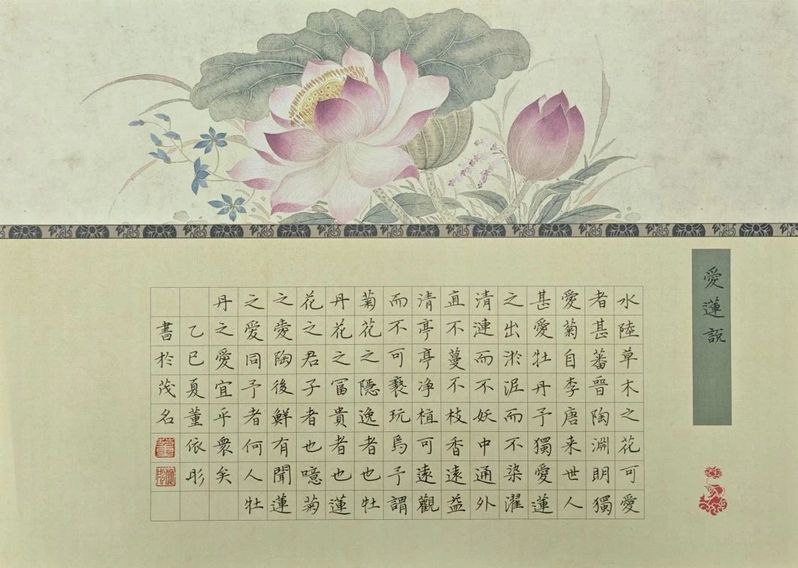 愛蓮説
水陸草木之花可愛
者甚蕃晉陶淵明獨
愛菊自李唐来世人
甚愛牡丹予獨愛蓮
之出淤泥而不染濯
清漣而不妖中通外
直不蔓不枝香遠益
清亭亭净植可遠觀
而不可褻玩焉予謂
菊花之隱逸者也牡
丹花之冨貴者也蓮
花之君子者也噫菊
之愛陶後鮮有聞蓮
之愛同予者何人牡
丹之愛宜乎衆矣
乙巳夏董依彤
書於茂名